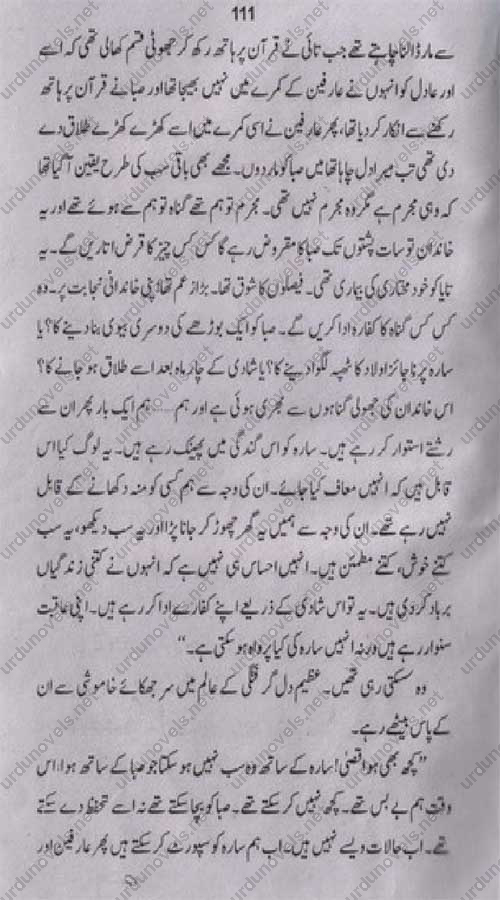 111
سے مار ڈالنا چاہتے تھے جب تائی نے قرآن پر ہاتھ رکھ کر جھوٹی قسم کھالی تھی کہ اسے
اور عادل کو انہوں نے عارفین کے کمرے میں نہیں بھیجا تھا اور صبا نے قرآن پر ہاتھ
رکھنے سے انکار کر دیا تھا، پھر عارفین نے اسی کمرے میں اسے کھڑے کھڑے طلاق دے
دی تھی تب میرا دل چاہا تھا میں صبا کو مار دوں۔ مجھے بھی باقی سب کی طرح یقین آ گیا تھا
کہ وہی مجرم ہے مگر وہ مجرم نہیں تھی۔ مجرم تو ہم تھے گناہ تو ہم سے ہوئے تھے اور یہ
خاندان تو سات پشتوں تک صبا کا مقروض رہے گا کس کس چیز کا قرض اتاریں گے۔ یہ
تایا کو خود مختاری کی بیماری تھی۔ فیصلوں کا شوق تھا۔ بڑا زعم تھا اپنی خاندانی نجابت پر۔ وہ
کس کس گناہ کا کفارہ ادا کریں گے۔ صبا کو ایک بوڑھے کی دوسری بیوی بنا دینے کا؟ یا
سارہ پر ناجائز اولاد کا ٹھپہ لگوا دینے کا؟ یا شادی کے چار ماہ بعد اسے طلاق ہو جانے کا؟
اس خاندان کی جھولی گناہوں سے بھری ہوئی ہے اور ہم...... ہم ایک بار پھر ان سے
رشتے استوار کر رہے ہیں۔ سارہ کو اس گندگی میں پھینک رہے ہیں۔ یہ لوگ کیا اس
قابل ہیں کہ انہیں معاف کیا جائے۔ ان کی وجہ سے ہم کسی کو منہ دکھانے کے قابل
نہیں رہے تھے۔ ان کی وجہ سے ہمیں یہ گھر چھوڑ کر جانا پڑا اور یہ سب دیکھو، یہ سب
کتنے خوش، کتنے مطمئن ہیں۔ انہیں احساس ہی نہیں ہے کہ انہوں نے کتنی زندگیاں
برباد کر دی ہیں۔ یہ تو اس شادی کے ذریعے اپنے کفارے ادا کر رہے ہیں۔ اپنی عاقبت
سنوار رہے ہیں ورنہ انہیں سارہ کی کیا پرواہ ہو سکتی ہے۔“
وہ سسکتی رہی تھیں۔ عظیم دل گرفتگی کے عالم میں سر جھکائے خاموشی سے ان
کے پاس بیٹھے رہے۔
”کچھ بھی ہو اقصیٰ! سارہ کے ساتھ وہ سب نہیں ہو سکتا جو صبا کے ساتھ ہوا، اس
وقت ہم بے بس تھے۔ کچھ نہیں کر سکتے تھے۔ صبا کو بچا سکتے تھے نہ اسے تحفظ دے سکتے
تھے۔ اب حالات ویسے نہیں ہیں۔ اب ہم سارہ کو سپورٹ کر سکتے ہیں پھر عارفین اور
urdunovels.net